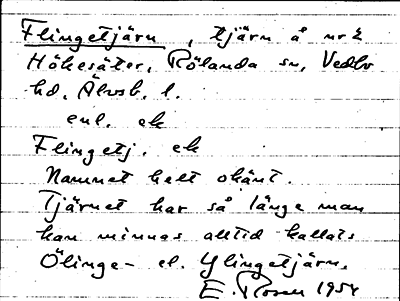 Flingetjärn, tjärn å nr 2
Hökesäter, Rölanda sn, Vedbo
hd, Älvsb. l.
enl. ek
Flingetj. ek
Namnet helt okänt.
Tjärnet har så länge man
kan minnas alltid kallats
Ölinge- el. Ylingetjärn.
E. Rosen 1954